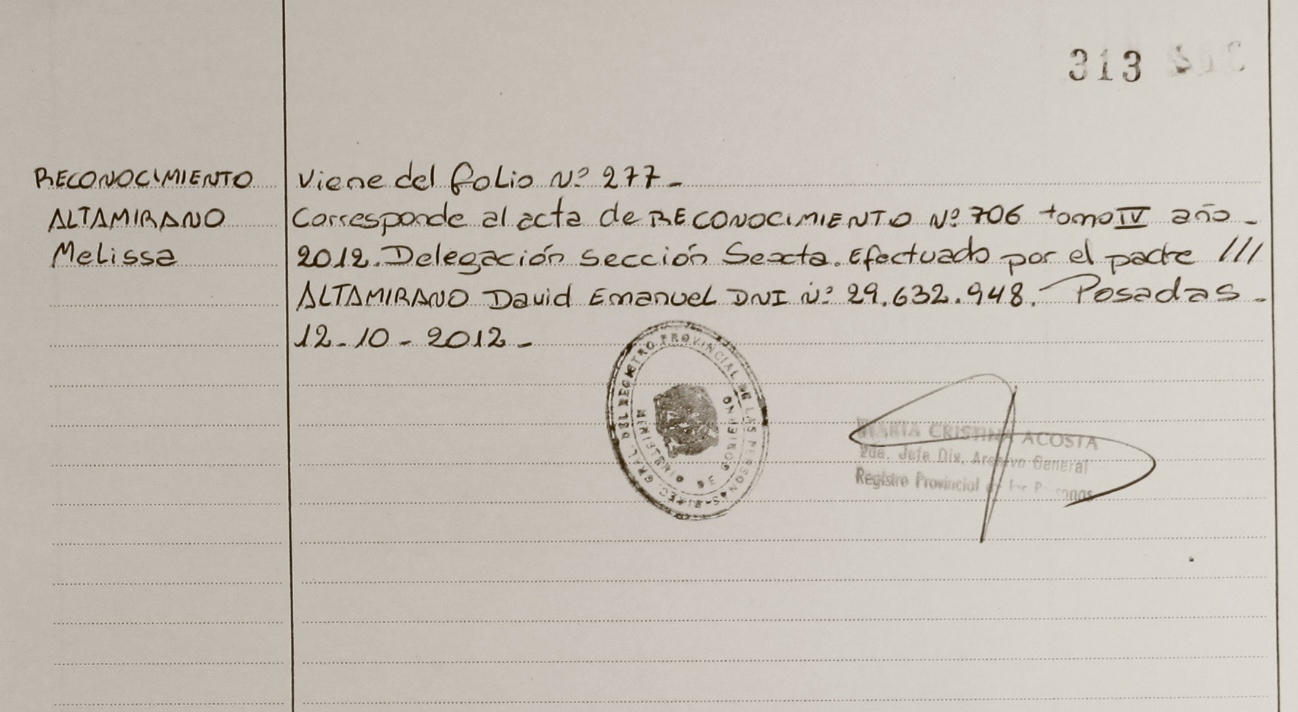 313
RECONOCIMIENTO
ALTAMIRANO
Melissa
Viene del folio Nº 277.-
Corresponde al acta de RECONOCIMIENTO Nº 706 tomo IV año -
2012. Delegación Sección Sexta. Efectuado por el padre ///
ALTAMIRANO David Emanuel DNI Nº 29.632.948.- Posadas -
12-10-2012-
GRAL. DEL REGISTRO PROVINCIAL DE LAS PERSONAS
MINISTERIO DE GOBIERNO
MARTA CRISTINA ACOSTA
Jefe Div. Archivo General
Registro Provincial de las Personas